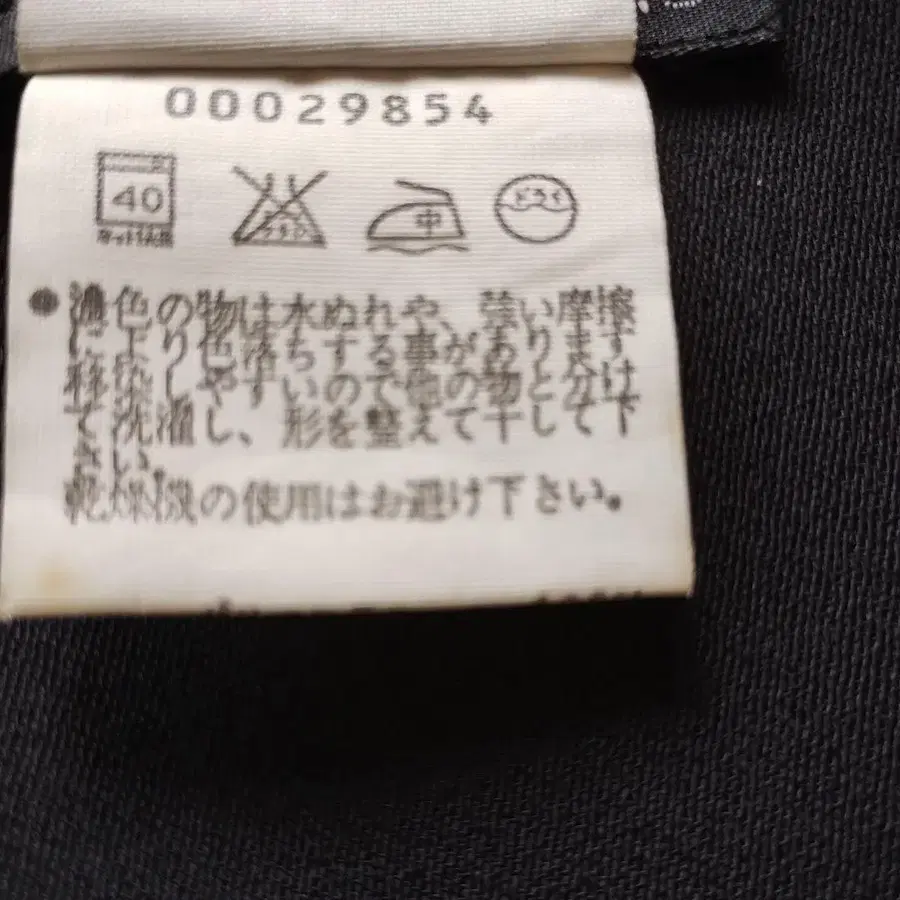 00029854
40
ネット使用
エンソサラシ
中
ドライ
●濃色の物は水ぬれや、強い摩擦
により色落ちする事があります
移染しやすいので他の物と分け
て洗濯し、形を整えて干して下
さい。
乾燥機の使用はお避け下さい。